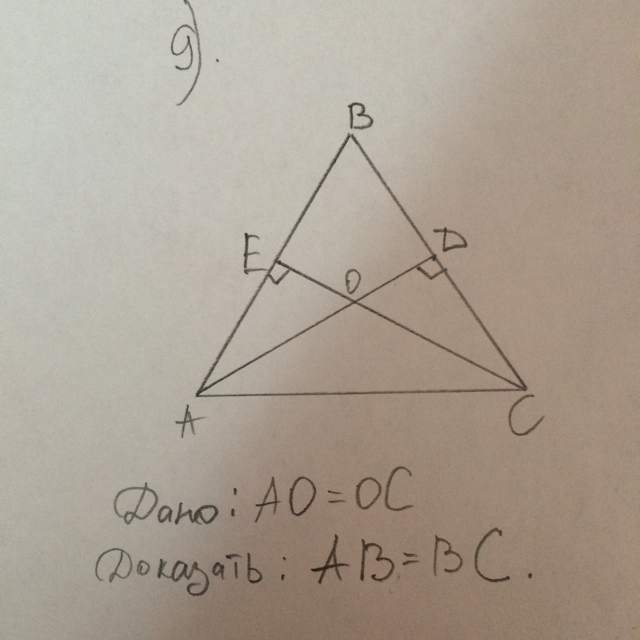 9).
B
E
D
O
A
C
Дано: AO=OC
Доказать: AB=BC.